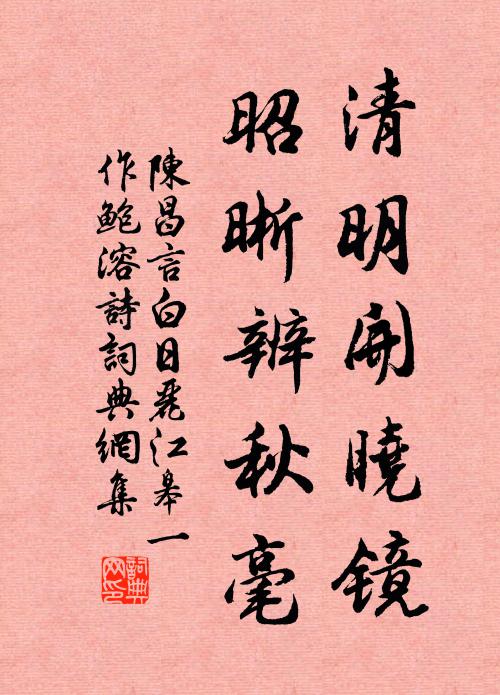 清明開曉鏡
昭晰辨秋毫
陳昌言白日麗江皋一
作鲍溶詩詞典網集
詞典網印